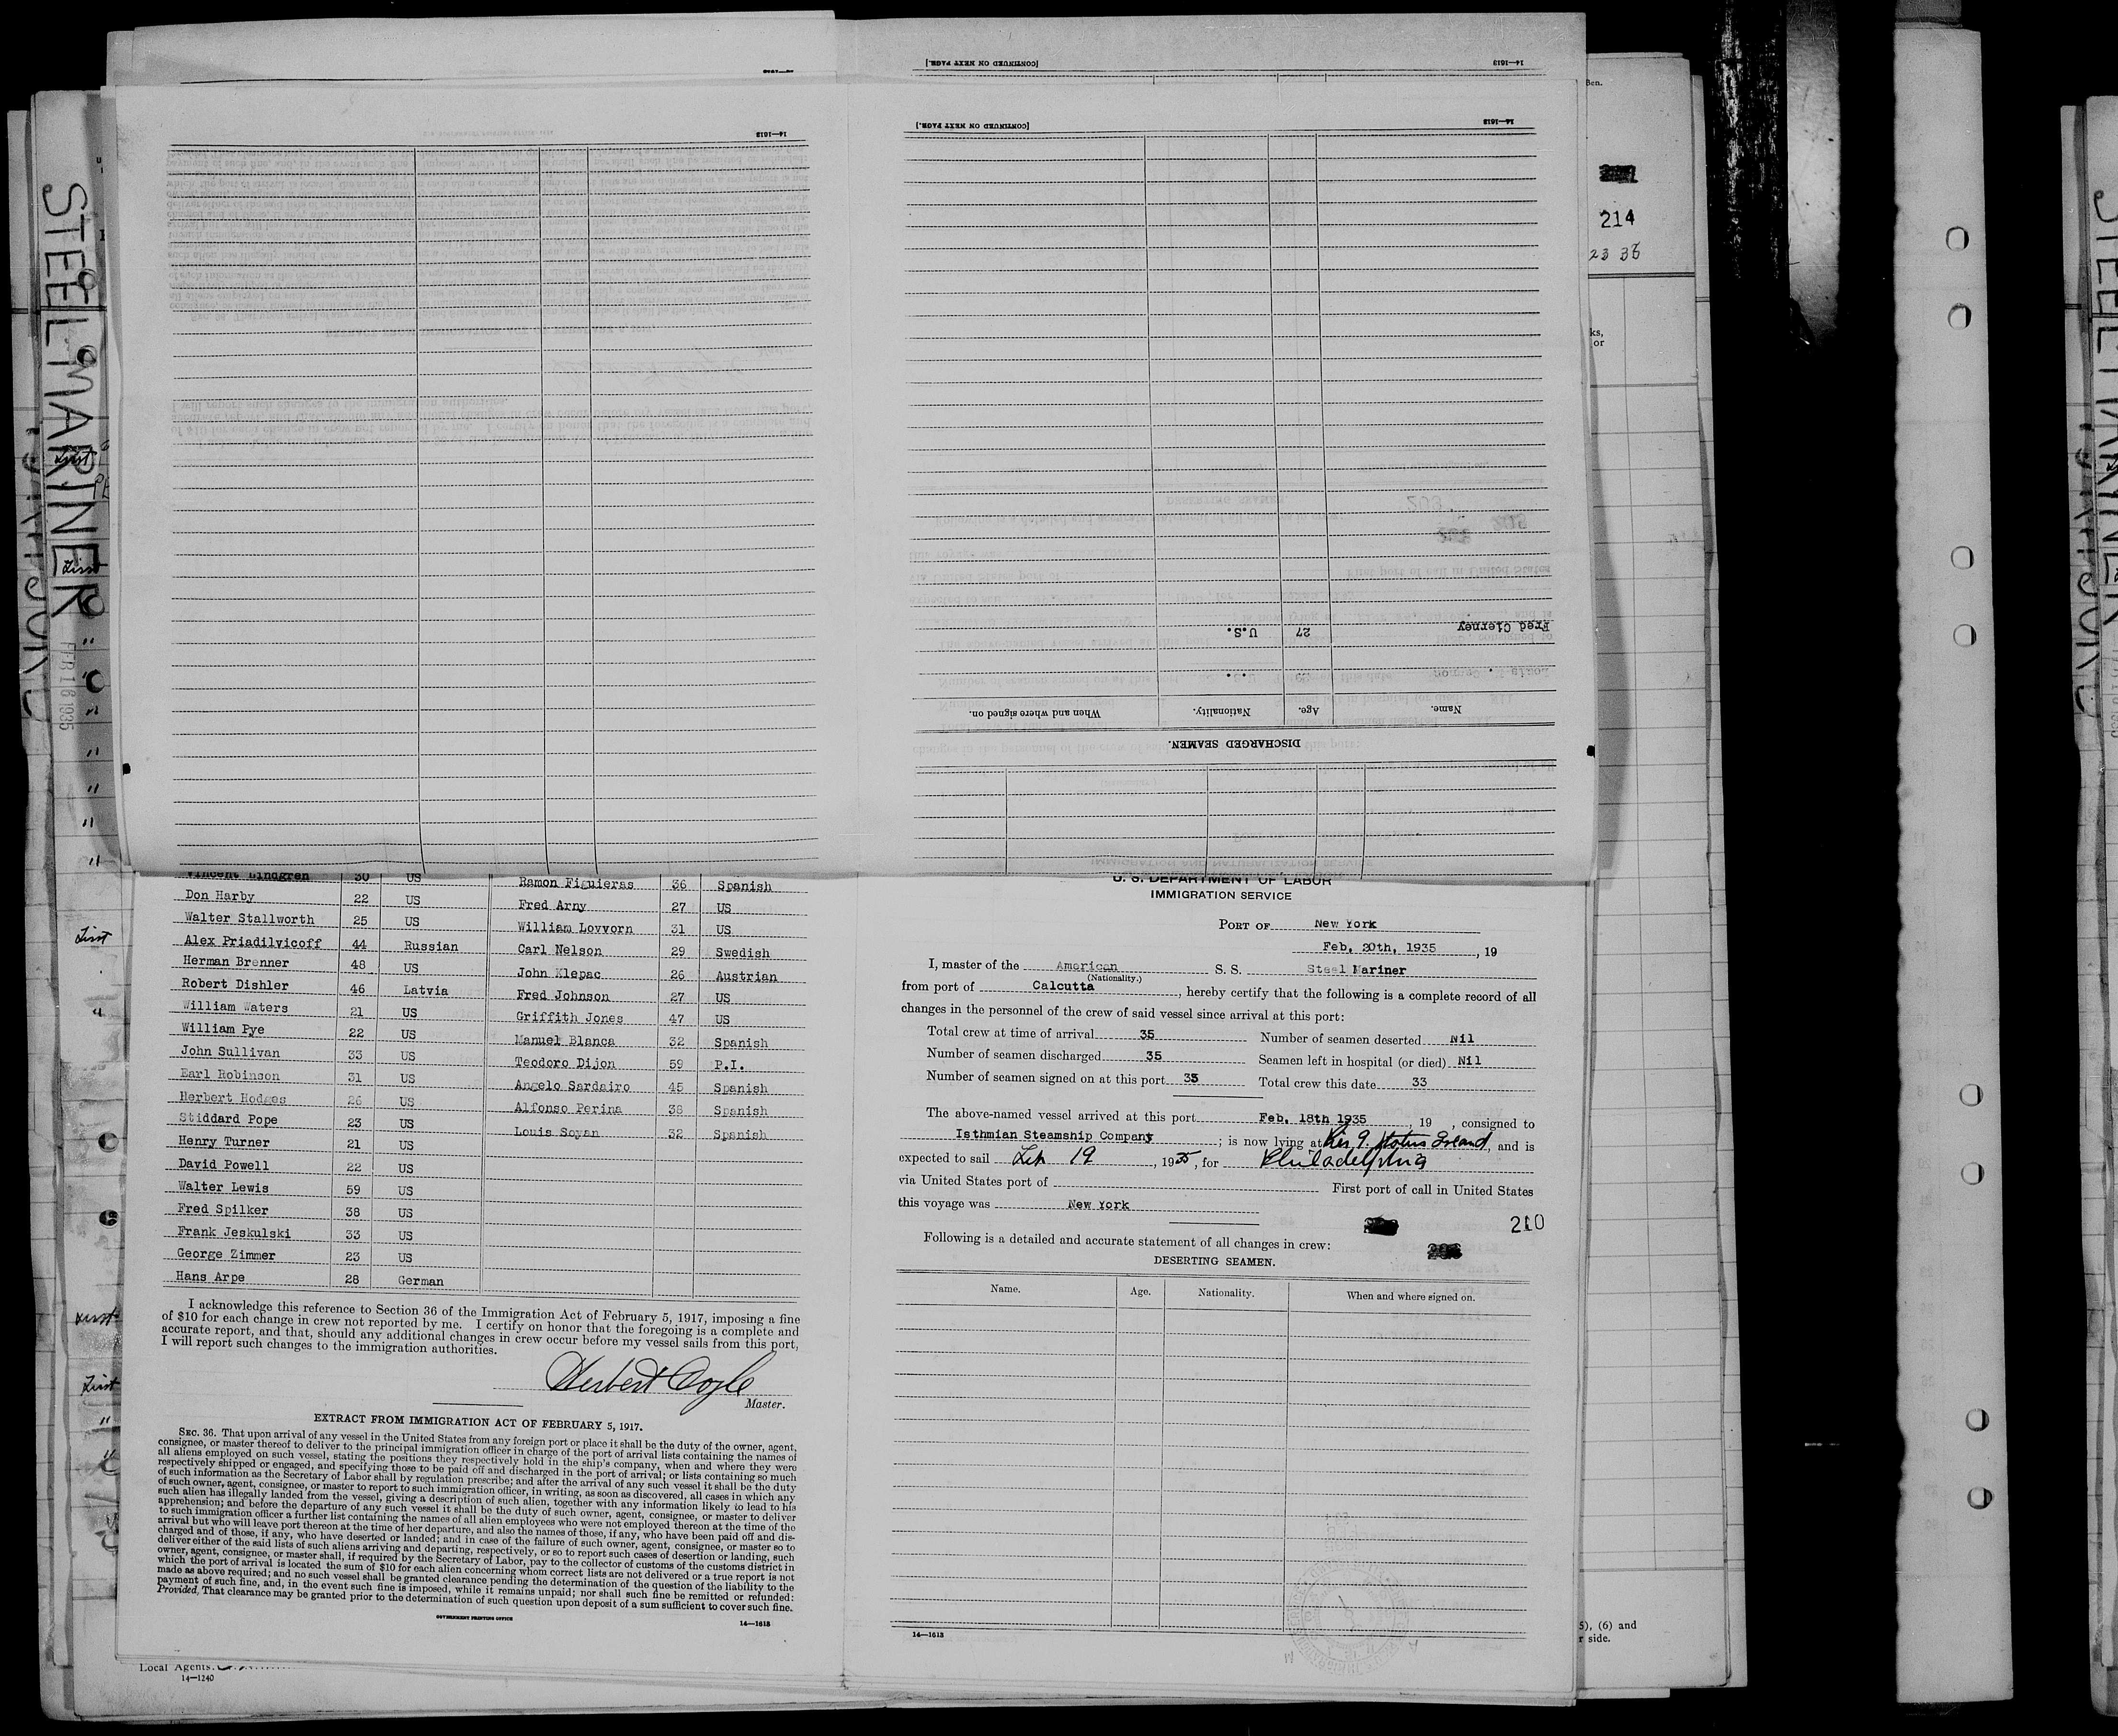 [CONTINUED ON NEXT PAGE.]
14—1613
14—1613
[CONTINUED ON NEXT PAGE.]
14—1613
Fred Cierney 27 U.S.
Name. Age. Nationality. When and where signed on.
DISCHARGED SEAMEN.
STEEL MARINER
FEB 16 1935
214
23 36
Vincent Lindgren 30 US
Don Harby 22 US
Walter Stallworth 25 US
Alex Priadilvicoff 44 Russian
Herman Brenner 48 US
Robert Dishler 46 Latvia
William Waters 21 US
William Pye 22 US
John Sullivan 33 US
Earl Robinson 31 US
Herbert Hodges 26 US
Stiddard Pope 23 US
Henry Turner 21 US
David Powell 22 US
Walter Lewis 59 US
Fred Spilker 38 US
Frank Jeskulski 33 US
George Zimmer 23 US
Hans Arpe 28 German
Ramon Figuieras 36 Spanish
Fred Arny 27 US
William Lovvorn 31 US
Carl Nelson 29 Swedish
John Klepac 26 Austrian
Fred Johnson 27 US
Griffith Jones 47 US
Manuel Blanca 32 Spanish
Teodoro Dijon 59 P.I.
Angelo Sardairo 45 Spanish
Alfonso Perina 38 Spanish
Louis Soyan 32 Spanish
I acknowledge this reference to Section 36 of the Immigration Act of February 5, 1917, imposing a fine
of $10 for each change in crew not reported by me. I certify on honor that the foregoing is a complete and
accurate report, and that, should any additional changes in crew occur before my vessel sails from this port,
I will report such changes to the immigration authorities.
Herbert Coyle
Master.
EXTRACT FROM IMMIGRATION ACT OF FEBRUARY 5, 1917.
SEC. 36. That upon arrival of any vessel in the United States from any foreign port or place it shall be the duty of the owner, agent,
consignee, or master thereof to deliver to the principal immigration officer in charge of the port of arrival lists containing the names of
all aliens employed on such vessel, stating the positions they respectively hold in the ship's company, when and where they were
respectively shipped or engaged, and specifying those to be paid off and discharged in the port of arrival; or lists containing so much
of such information as the Secretary of Labor shall by regulation prescribe; and after the arrival of any such vessel it shall be the duty
of such owner, agent, consignee, or master to report to such immigration officer, in writing, as soon as discovered, all cases in which any
such alien has illegally landed from the vessel, giving a description of such alien, together with any information likely to lead to his
apprehension; and before the departure of any such vessel it shall be the duty of such owner, agent, consignee, or master to deliver
to such immigration officer a further list containing the names of all alien employees who were not employed thereon at the time of the
arrival but who will leave port thereon at the time of her departure, and also the names of those, if any, who have been paid off and dis-
charged and of those, if any, who have deserted or landed; and in case of the failure of such owner, agent, consignee, or master so to
deliver either of the said lists of such aliens arriving and departing, respectively, or so to report such cases of desertion or landing, such
owner, agent, consignee, or master shall, if required by the Secretary of Labor, pay to the collector of customs of the customs district in
which the port of arrival is located the sum of $10 for each alien concerning whom correct lists are not delivered or a true report is not
made as above required; and no such vessel shall be granted clearance pending the determination of the question of the liability to the
payment of such fine, and, in the event such fine is imposed, while it remains unpaid; nor shall such fine be remitted or refunded:
Provided, That clearance may be granted prior to the determination of such question upon deposit of a sum sufficient to cover such fine.
GOVERNMENT PRINTING OFFICE
14—1613
Local Agents.
14—1240
U. S. DEPARTMENT OF LABOR
IMMIGRATION SERVICE
PORT OF New York
Feb, 20th, 1935, 19
I, master of the American S. S. Steel Mariner
(Nationality.)
from port of Calcutta, hereby certify that the following is a complete record of all
changes in the personnel of the crew of said vessel since arrival at this port:
Total crew at time of arrival 35 Number of seamen deserted Nil
Number of seamen discharged 35 Seamen left in hospital (or died) Nil
Number of seamen signed on at this port 33 Total crew this date 33
The above-named vessel arrived at this port Feb, 18th 1935, 19 , consigned to
Isthmian Steamship Company; is now lying at Pier 9. Staten Island, and is
expected to sail Feb 19, 1935, for Philadelphia
via United States port of First port of call in United States
this voyage was New York
210
Following is a detailed and accurate statement of all changes in crew:
DESERTING SEAMEN.
Name. Age. Nationality. When and where signed on.
14—1613
5), (6) and
r side.